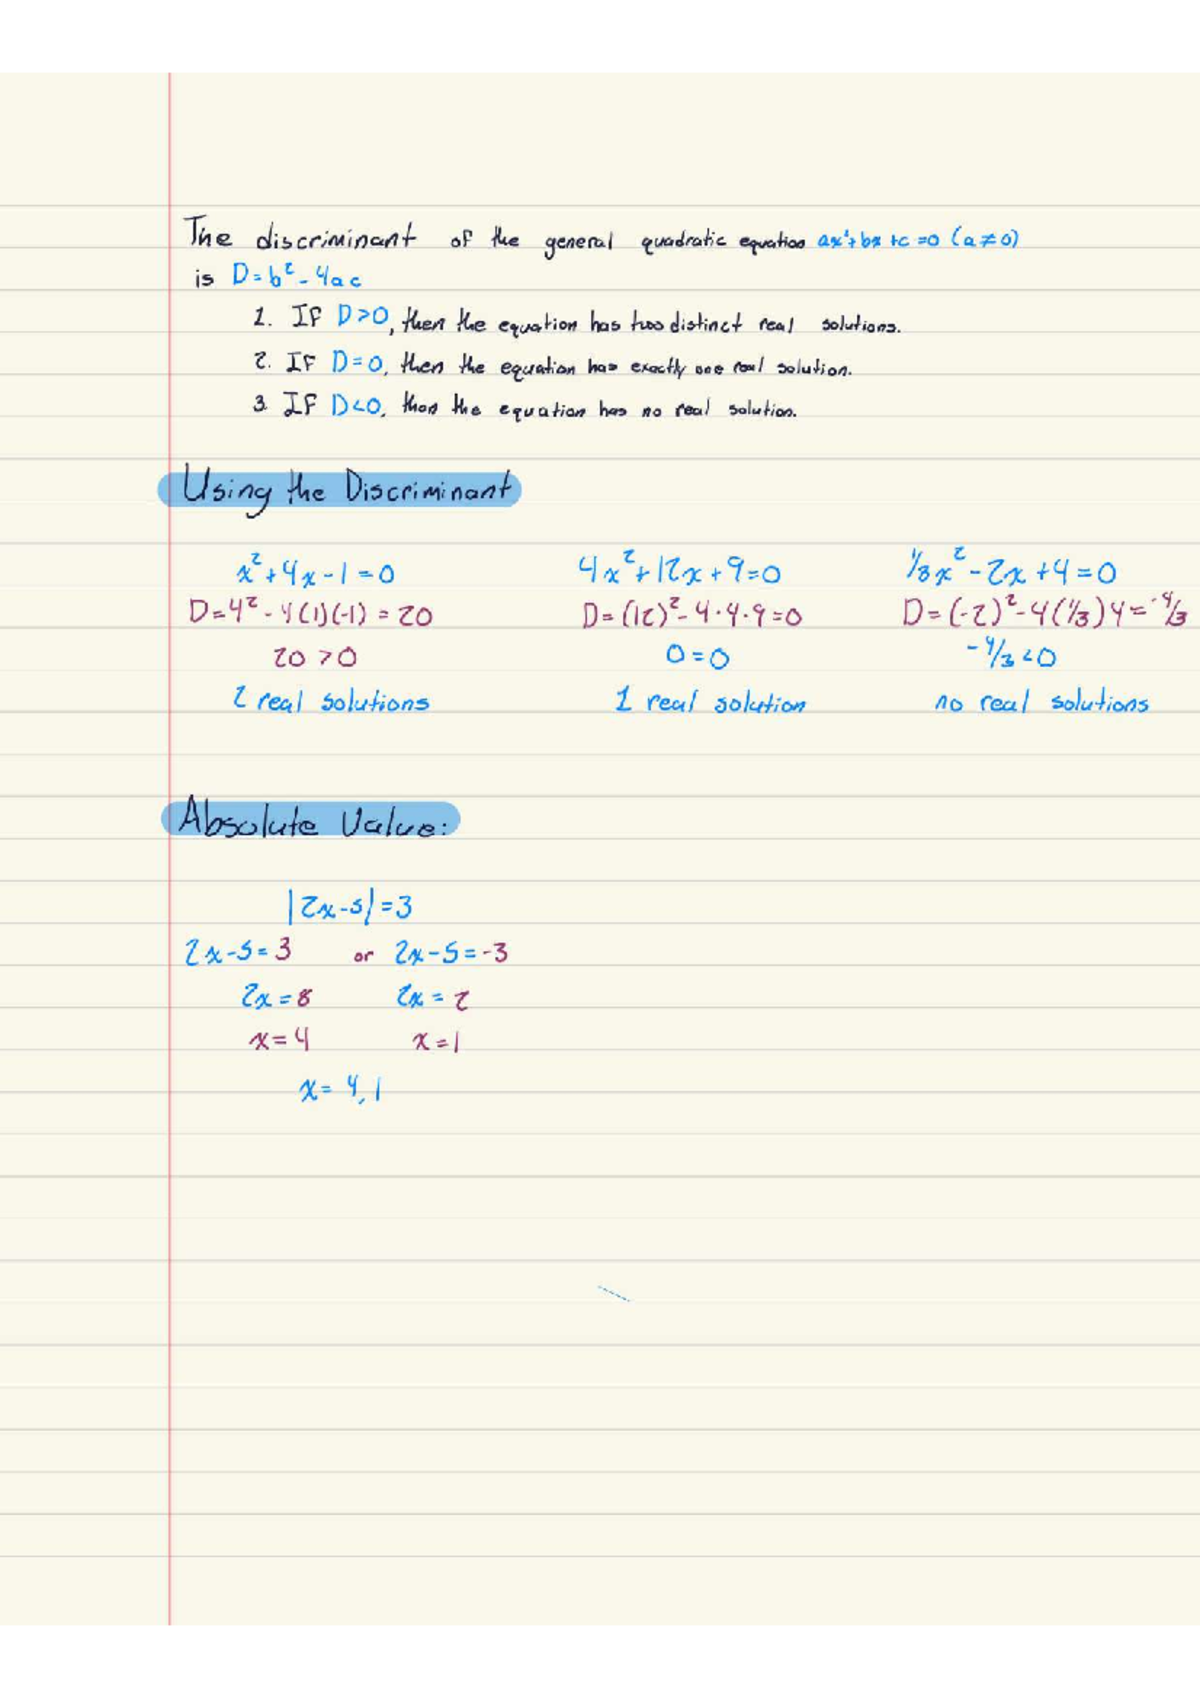 The discriminant of the general quadratic equation ax²+bx+c=0 (a≠0)
is D=b²-4ac
1. If D>0, then the equation has two distinct real solutions.
2. If D=0, then the equation has exactly one real solution.
3. If D<0, then the equation has no real solution.
Using the Discriminant
x²+4x-1=0 4x²+12x+9=0 1/3x²-2x+4=0
D=4²-4(1)(-1)=20 D=(12)²-4·4·9=0 D=(-2)²-4(1/3)4=-4/3
20>0 0=0 -4/3<0
2 real solutions 1 real solution no real solutions
Absolute Value:
|2x-5|=3
2x-5=3 or 2x-5=-3
2x=8 2x=2
x=4 x=1
x=4,1